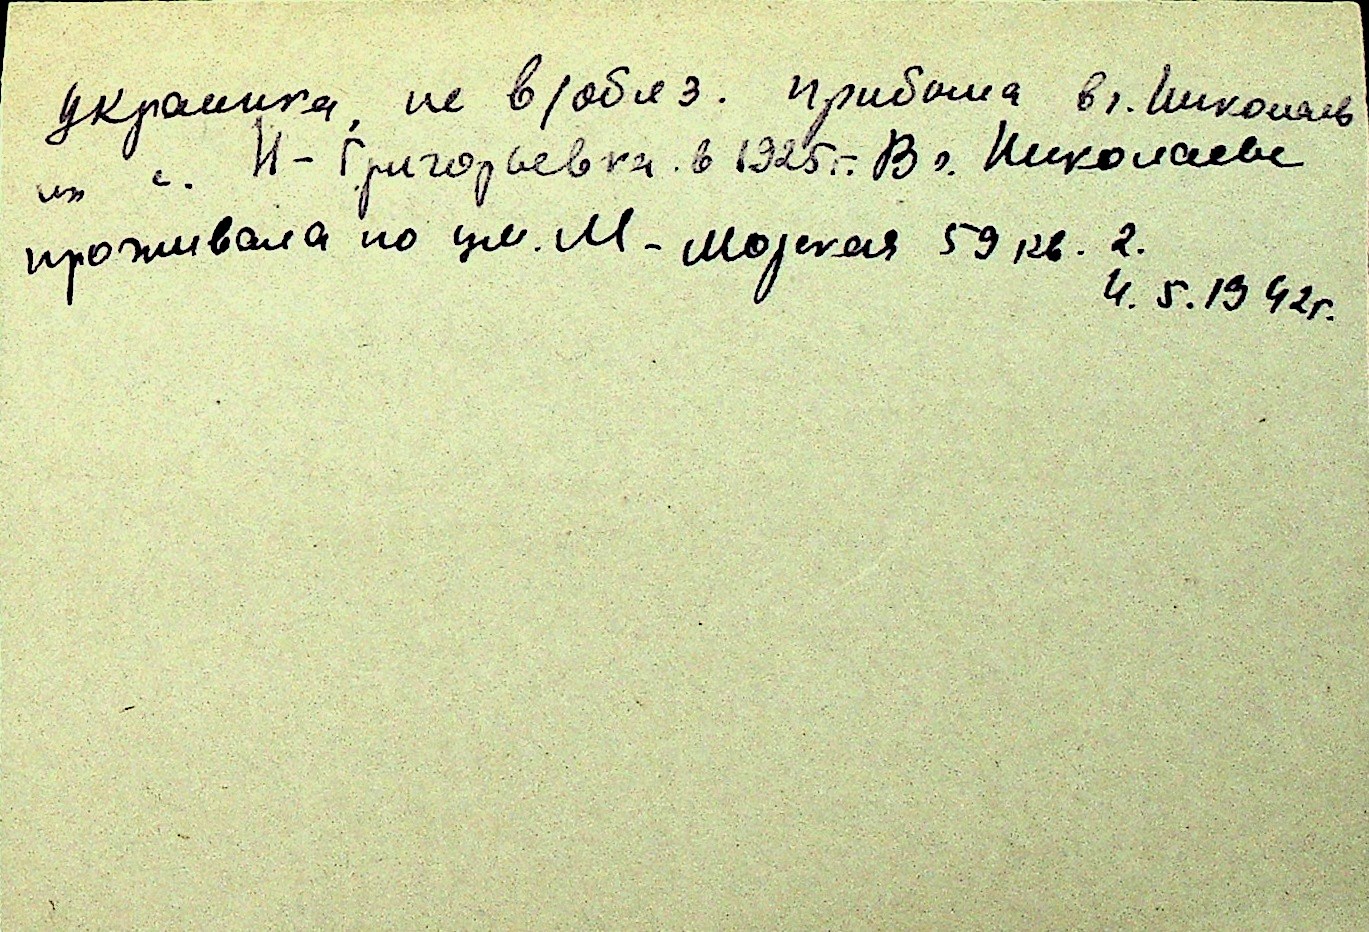 украинка, не в/обяз. прибыла в г. Николаев
из с. Н-Григорьевка. в 1925г. В г. Николаеве
проживала по ул. М-Морская 59 кв. 2.
4. 5. 1942г.